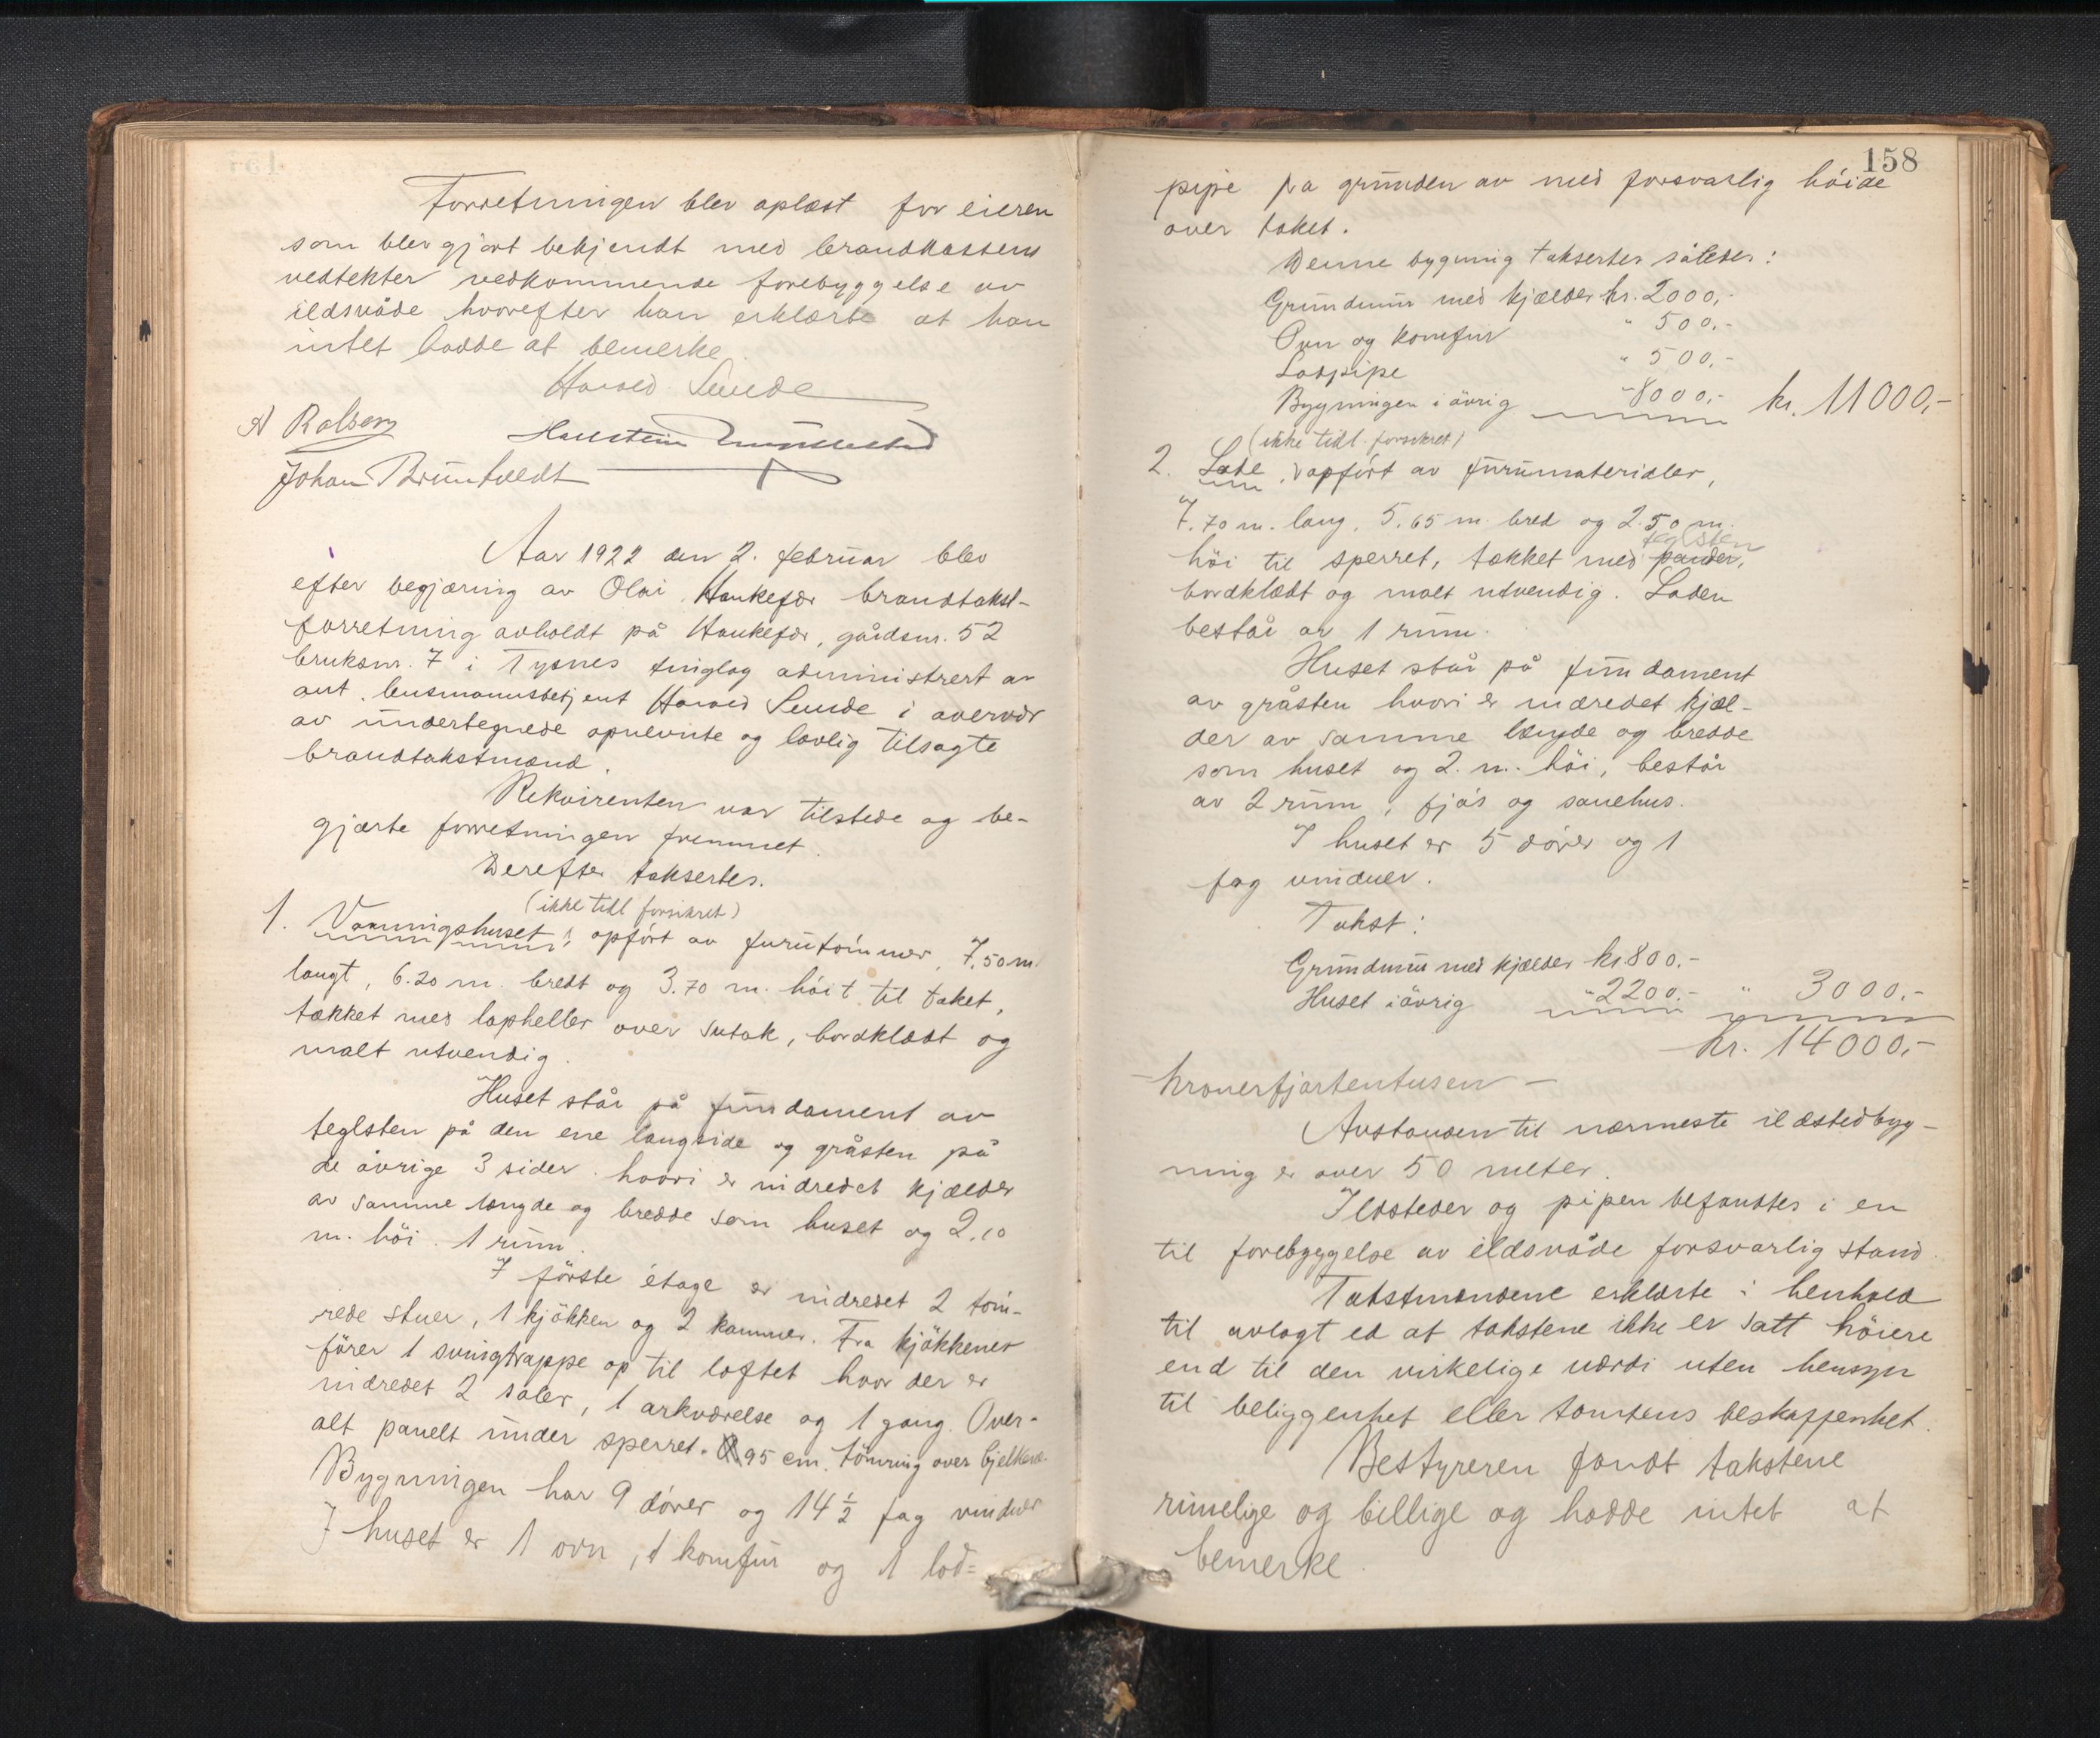 Forretningen blev oplæst for eieren
som blev gjort bekjendt med brandkassens
vedtekter vedkommende forebyggelse av
ildsvåde hvorefter han erklærte at han
intet hadde at bemerke.
Harald Sunde
A Rolsvog Hallstein
Johan Bruntveldt
Aar 1922 den 2. februar blev
efter begjæring av Olai Haukefær brandtakst-
forretning avholdt på Haukefær, gårdsnr. 52
bruksnr. 7 i Tysnes tinglag administrert av
aut. lensmannsbetjent Harald Sunde i overvær
av undertegnede opnevnte og lovlig tilsagte
brandtakstmænd.
Rekvirenten var tilstede og be-
gjærte forretningen fremmet.
Derefter taksertes.
(ikke tidl forsikret)
1. Vaaningshuset, opført av furutømmer, 7,50 m.
langt, 6.20 m. bredt og 3.70 m. høit til taket,
tækket med lapheller over sutak, bordklædt og
malt utvendig.
Huset står på fundament av
teglsten på den ene langside og gråsten på
de øvrige 3 sider. hvori er indredet kjælder
av samme længde og bredde som huset og 2,10
m. høi. 1 rum.
I første etage er indredet 2 töm-
rede stuer, 1 kjøkken og 2 kammer. Fra kjøkkenet
fører 1 svingtrappe op til loftet hvor der er
indredet 2 saler, 1 arkværelse og 1 gang. Over-
alt panelt under sperret. 95 cm. tømring over bjelkene.
Bygningen har 9 dører og 14 ½ fag vinduer
I huset er 1 ovn, 1 komfur og 1 lod=
158
pipe fra grunden av med forsvarlig høide
over taket.
Denne bygning taksertes således:
Grundmur med kjælder kr. 2000,-
Ovn og komfur " 500,-
Lodpipe " 500,-
Bygningen i øvrig " 8000,- kr. 11000,-
(ikke tidl. forsikret)
2. Lade, opført av furumaterialer,
7.70 m. lang, 5.65 m. bred og 2.50 m.
teglsten
høi til sperret, tækket med pander,
bordklædt og malt utvendig. Laden
består av 1 rum.
Huset står på fundament
av gråsten hvori er indredet kjæl-
der av samme længde og bredde
som huset og 2. m. høi, består
av 2 rum, fjøs og sauehus.
I huset er 5 dører og 1
fag vinduer.
Takst:
Grundmur med kjælder kr 800.-
Huset i øvrig " 2200.- " 3000.-
kr. 14000,-
- kronerfjortentusen -
Avstanden til nærmeste ildstedbyg-
ning er over 50 meter.
Ildsteder og pipen befandtes i en
til forebyggelse av ildsvåde forsvarlig stand.
Takstmændene erklærte i henhold
til avlagt ed at takstene ikke er satt høiere
end til den virkelige værdi uten hensyn
til beliggenhet eller tomtens beskaffenhet.
Bestyreren fandt takstene
rimelige og billige og hadde intet at
bemerke